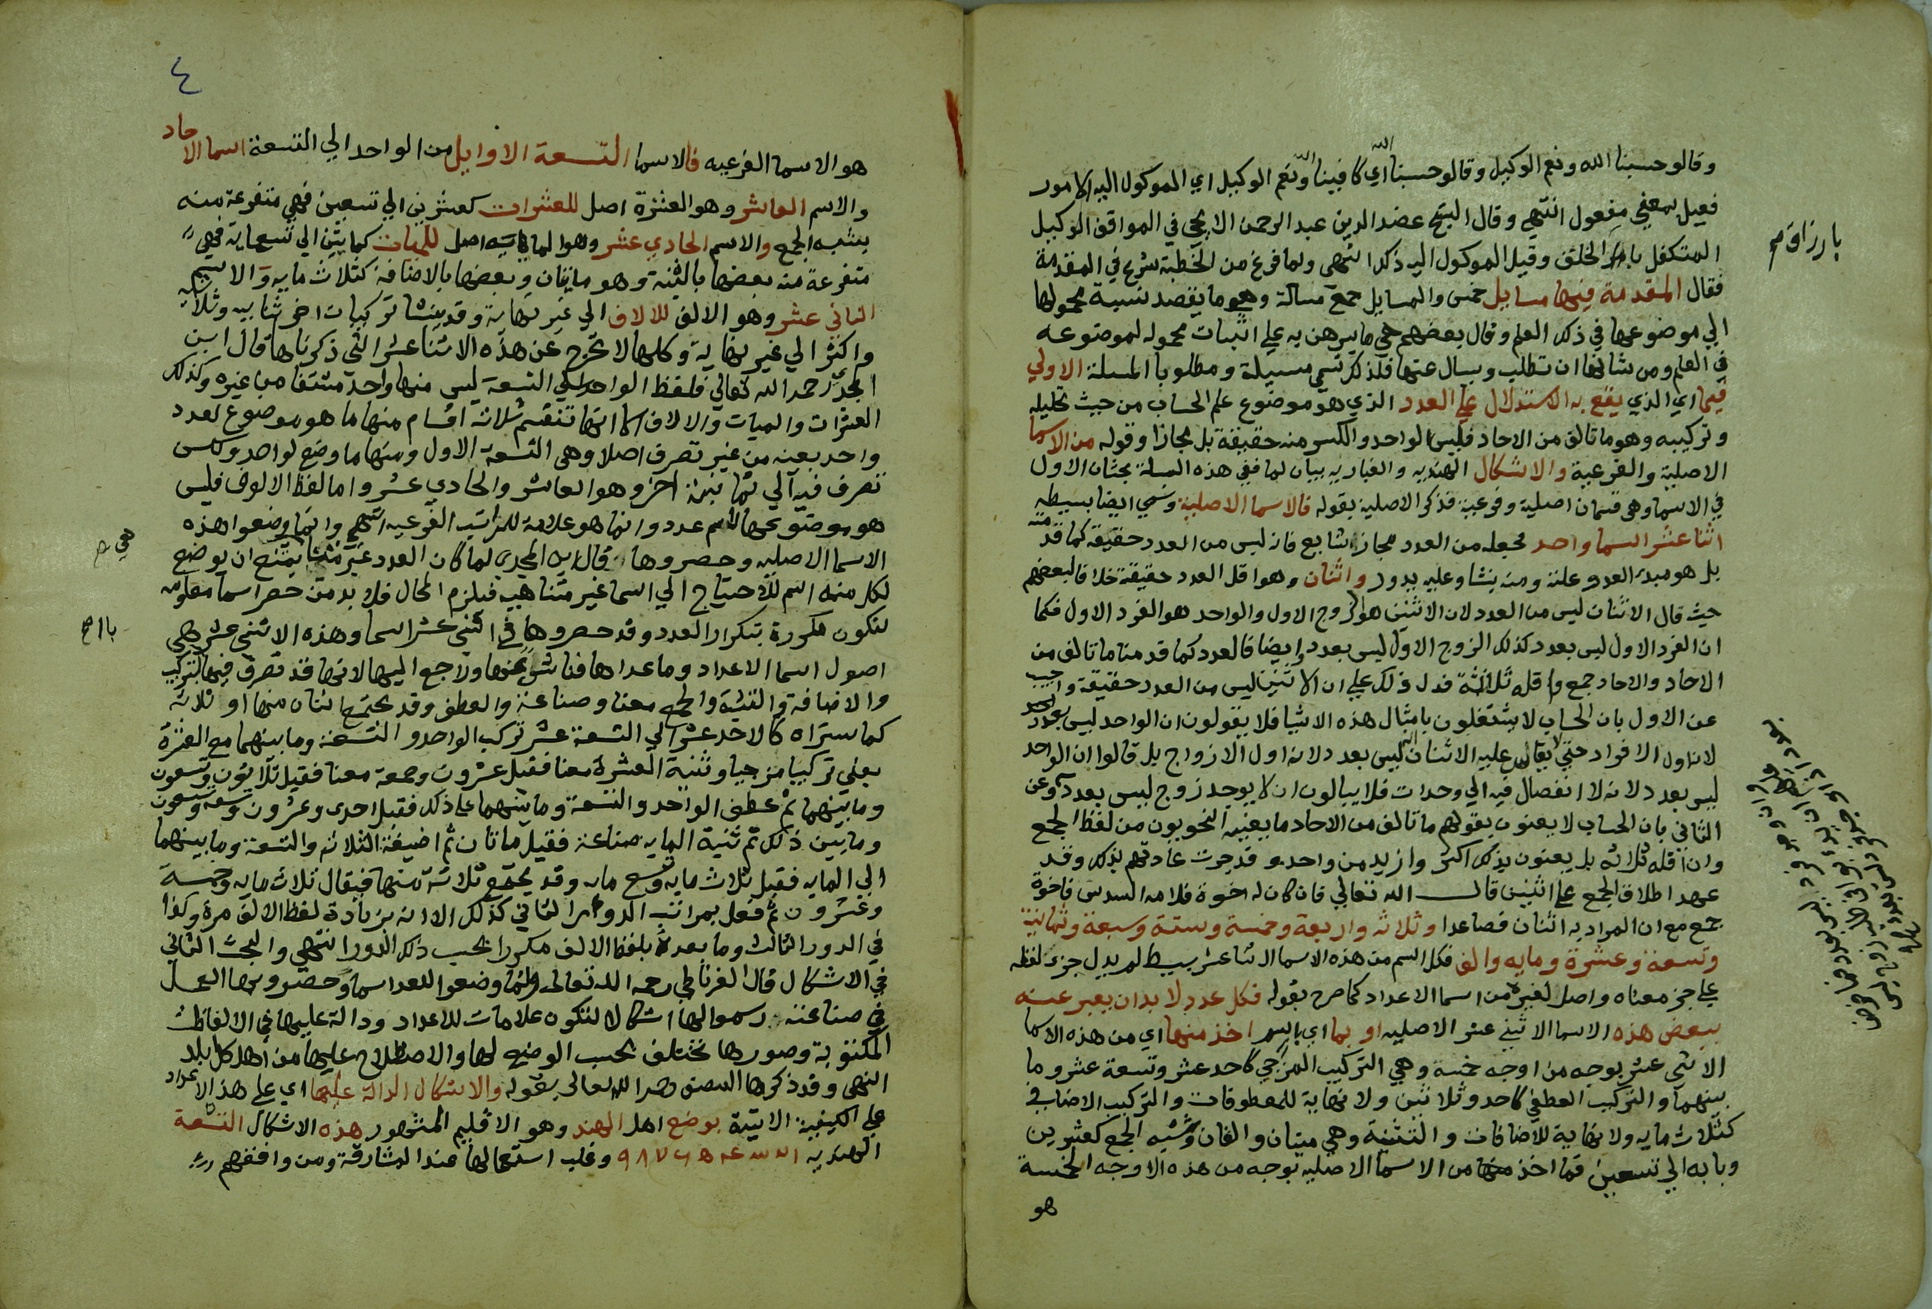 وقالو حسبنا الله ونعم الوكيل وقالو حسبنا الله اي كافينا الله ونعم الوكيل اي الموكول اليه الامور
فعيل بمعني مفعول انتهي وقال الشيخ عضد الدين عبد الرحمن الايجي في المواقف الوكيل
المتكفل بامر الخلق وقيل الموكول اليه ذلك انتهى ولما فرغ من الخطبة شرع في المقدمة
فقال المقدمة فيها مسايل خمس والمسايل جمع مسالة وهو ما يقصد نسبة محمولها
الي موضوعها في ذلك العلم وقال بعضهم هي ما يبرهن به علي اثبات محموله لموضوعه
في العلم ومن شانها ان تطلب ويسال عنها فلذلك تسمي مسيلة ومطلوبا المسلة الاولي
فيما اي الذي يقع به الاستدلال علي العدد الذي هو موضوع علم الحساب من حيث تحليله
وتركيبه وهو ما تالف من الاحاد فليس الواحد والكسر منه حقيقة بل مجازا وقوله من الاسما
الاصلية والفرعية والاشكال الهنديه والغباريه بيان لما ففي هذه المسلة بحثان الاول
في الاسما وهي قسمان اصلية وفرعية فذكر الاصلية بقوله فالاسما الاصلية وتسمي ايضا بسيطه
اثنا عشر اسما واحد فجعله من العدد مجاز شايع فانه ليس من العدد حقيقة كما قدمته
بل هو مبدء العدد وعلته ومنه ينشا وعليه يدور واثنان وهو اقل العدد حقيقة خلافا لبعضهم
حيث قال الاثنان ليس من العدد لان الاثنين هو الزوج الاول والواحد هو الفرد الاول فكما
ان الفرد الاول ليس بعدد كذلك الزوج الاول ليس بعدد وايضا فالعدد كما قدمنا ما تالف من
الاحاد والاحاد جمع واقله ثلاثة فدل ذلك علي ان الاثنين ليس من العدد حقيقة واجيب
عن الاول بان الحساب لا يشتغلون بامثال هذه الاشيا فلا يقولون ان الواحد ليس بعدد
لانه اول الافراد حتي يقاس عليه الاثنان انه ليس بعدد لانه اول الازواج بل قالوا ان الواحد
ليس بعدد لانه لا انفصال فيه الي وحدات فلا يبالون ان لا يوجد زوج ليس بعدد وعن
الثاني بان الحساب لا يعنون بقولهم ما تالف من الاحاد ما يعنيه النحويون من لفظ الجمع
وان اقله ثلاثة بل يعنون بذلك اكثر وازيد من واحد وقد جرت عادتهم بذلك وقد
عهد اطلاق الجمع علي اثنين قال الله تعالي فان كان له اخوة فلامه السدس فاخوة
جمع مع ان المراد به اثنان فصاعدا وثلاثة واربعة وخمسة وستة وسبعة وثمانية
وتسعة وعشرة ومايه والف فكل اسم من هذه الاسما الاثنا عشر بسيط لم يدل جزء لفظه
علي جزء معناه واصل لغيره من اسما الاعداد كما صرح بقوله فكل عدد لا بد ان يعبر عنه
ببعض هذه الاسما الاثني عشر الاصليه او بما اي باسم اخذ منها اي من هذه الاسما
الاثني عشر بوجه من اوجه خمسة وهي التركيب المزجي كاحد عشر وتسعة عشر وما
بينهما والتركيب العطفي كاحد وثلاثين ولا نهاية للمعطوفات والتركيب الاضافي
كثلاث مايه ولا نهاية للاضافات والتثنية وهي ميتان والفان وشبه الجمع كعشرين
وبابه الي تسعين فما اخذ منها من الاسما الاصليه بوجه من هذه الاوجه الخمسة
هو
بارزاق صح
٤
هو الاسما الفرعيه فالاسما التسعة الاوايل من الواحد الي التسعة اسما الاحاد
والاسم العاشر وهو العشرة اصل للعشرات كعشرين الي تسعين فهي متفرعة منه
بشبه الجمع والاسم الحادي عشر وهو المايه اصل للميات كمايتين الي تسعماية فهي
متفرعة منه بعضها بالتثنية وهو مايتان وبعضها بالاضافة كثلاث مايه والاسم
الثاني عشر وهو الالف للالاف الي غير نهاية وقد ينشا تركيبات اخر ثنايه وثلاثيه
واكثر الي غير نهاية وكلها لا تخرج عن هذه الاثنا عشر التي ذكرناها قال ابن
المجدي رحمه الله تعالي فلفظ الواحد الي التسعة ليس منها واحد مشتقا من غيره وكذلك
العشرات والميات والالاف الا انها تنقسم ثلاثة اقسام منها ما هو موضوع لعدد
واحد بعينه من غير تصرف اصلا وهي التسعة الاول ومنها ما وضع لواحد ولكن
تصرف فيه الي ثمانية اخر وهو العاشر والحادي عشر واما لفظ الالوف فليس
هو موضوعا لاسم عدد وانما هو علامة للمراتب الفرعيه انتهي وانما وضعوا هذه
الاسما الاصليه وحصروها قال ابن المجدي لما كان العدد غير متناه يمتنع ان يوضع
لكل منه اسم للاحتياج الي اسما غير متناهيه فيلزم المحال فلا بد من حصر اسما معلومه
لتكون مكررة بتكرار العدد وقد حصروها في اثني عشر اسما وهذه الاثني عشر هي
اصول اسما الاعداد وما عداها فناش عنها وراجع اليها لانها قد تصرف فيها بالتركيب
والاضافة والتثنية والجمع معنا وصناعة والعطف وقد يجتمع اثنان منها او ثلاثة
كما ستراه كالاحد عشر الي التسعة عشر تركب الواحد والتسعة وما بينهما مع العشرة
بعلي تركيبا مزجيا وتثنية العشرة معنا فقيل عشرون وجمعه معنا فقيل ثلاثون وتسعون
وما بينهما ثم عطف الواحد والتسعة وما بينهما علي ذلك فقيل احدى وعشرون وتسعة وتسعون
وما بين ذلك ثم تثنية المايه صناعة فقيل ماتان ثم اضيفة الثلاثة والتسعة وما بينهما
الي المايه فقيل ثلاث مايه وتسع مايه وقد يجتمع ثلاثة منها فيقال ثلاث مايه وخمسة
وعشرون ثم فعل بمراتب الدور الثاني كذلك الا انه بزيادة لفظ الالف مرة وكذا
في الدور الثالث وما بعده بلفظ الالف مكررا بحسب ذلك الدور انتهي والبحث الثاني
في الاشكال قال الغرناطي رحمه الله تعالى ولما وضعوا للعدد اسما وحصروا بها العمل
في صناعته رسموا لها اشكالا لتكون علامات للاعداد ودالة عليها في الالفاظ
المكتوبة وصورها تختلف بحسب الوضع لها والاصطلاح عليها من اهل كل بلد
انتهي وقد ذكرها المصنف رحمه الله تعالى بقوله والاشكال الدالة عليها اي علي هذ الاعداد
علي الكيفية الاتية بوضع اهل الهند وهو الاقليم المشهور هذه الاشكال التسعة
الهنديه ٩٨٧٦ وغلب استعمالها عند المشارقة ومن وافقهم